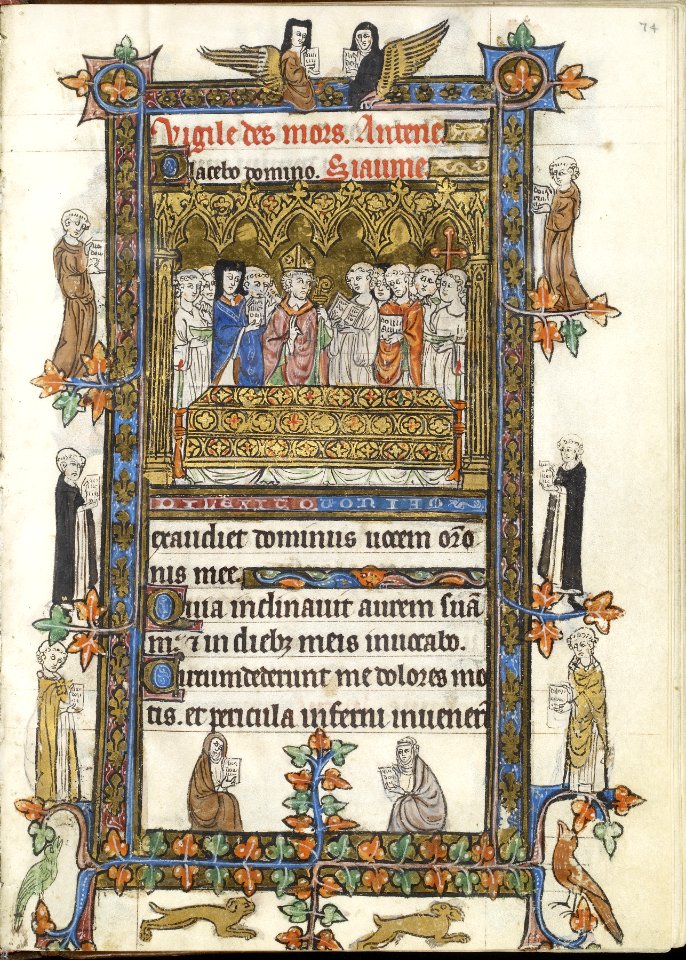 74
Vigile des mors. Antene.
Placebo domino. Siaume.
DILEXI QVONIAM
exaudiet dominus uocem or̄o
nis mee.
Quia inclinauit aurem suā
m̄ ⁊ in diebꝫ meis inuocabo.
Circumdederunt me dolores mo
tis. et pericula inferni inuener̄